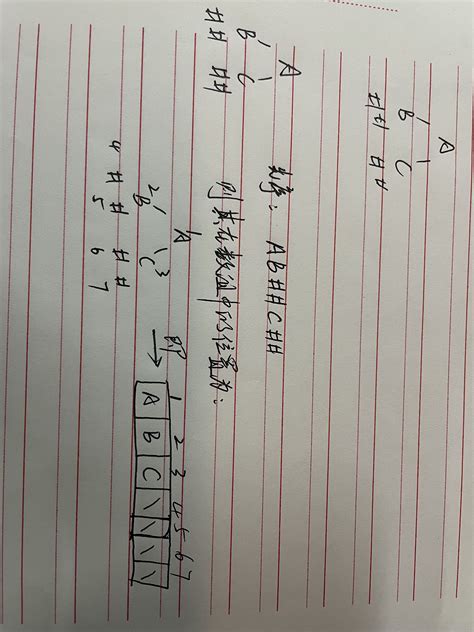 A
B C
# # # #
A
B C
# # # #
先序: AB##C##
则其在数组中的位置为:
1A
2B C3
# # # #
4 5 6 7
即 1 2 3 4 5 6 7
→ A B C \ \ \ \